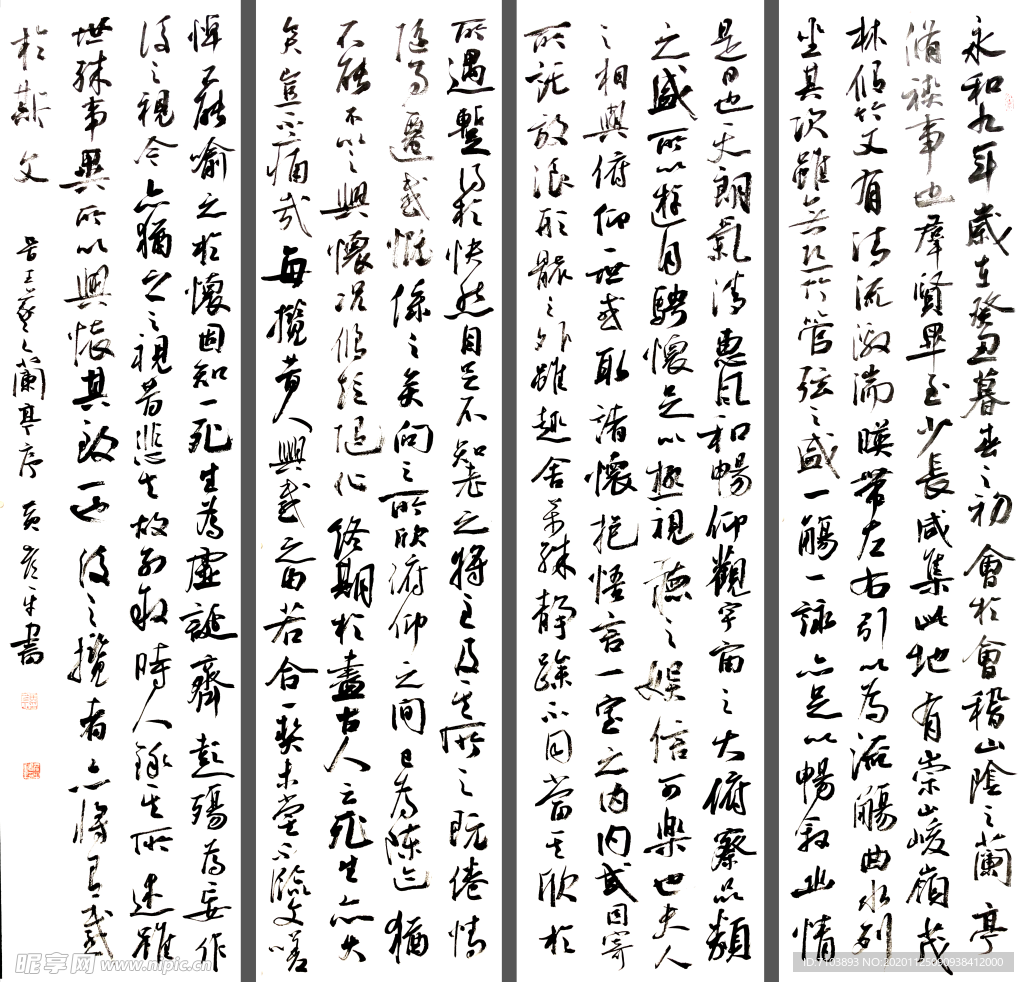 永和九年歲在癸丑暮春之初會於會稽山陰之蘭亭
脩禊事也羣賢畢至少長咸集此地有崇山峻嶺茂
林脩竹又有清流激湍暎帶左右引以為流觴曲水列
坐其次雖無絲竹管弦之盛一觴一詠亦足以暢敘幽情
是日也天朗氣清惠風和暢仰觀宇宙之大俯察品類
之盛所以遊目騁懷足以極視聽之娛信可樂也夫人
之相與俯仰一世或取諸懷抱悟言一室之内内或因寄
所託放浪形骸之外雖趣舍萬殊靜躁不同當其欣於
所遇暫得於快然自足不知老之將至及其所之既倦情
隨事遷感慨係之矣向之所欣俯仰之間已為陳迹猶
不能不以之興懷況脩短隨化終期於盡古人云死生亦大
矣豈不痛哉每攬昔人興感之由若合一契未嘗不臨文嗟
悼不能喻之於懷固知一死生為虛誕齊彭殤為妄作
後之視今亦猶今之視昔悲夫故列敘時人錄其所述雖
世殊事異所以興懷其致一也後之攬者亦將有感
於斯文 晉王羲之蘭亭序 書
昵享网 www.nipic.cn
ID:7103893 NO:20201125090938412000